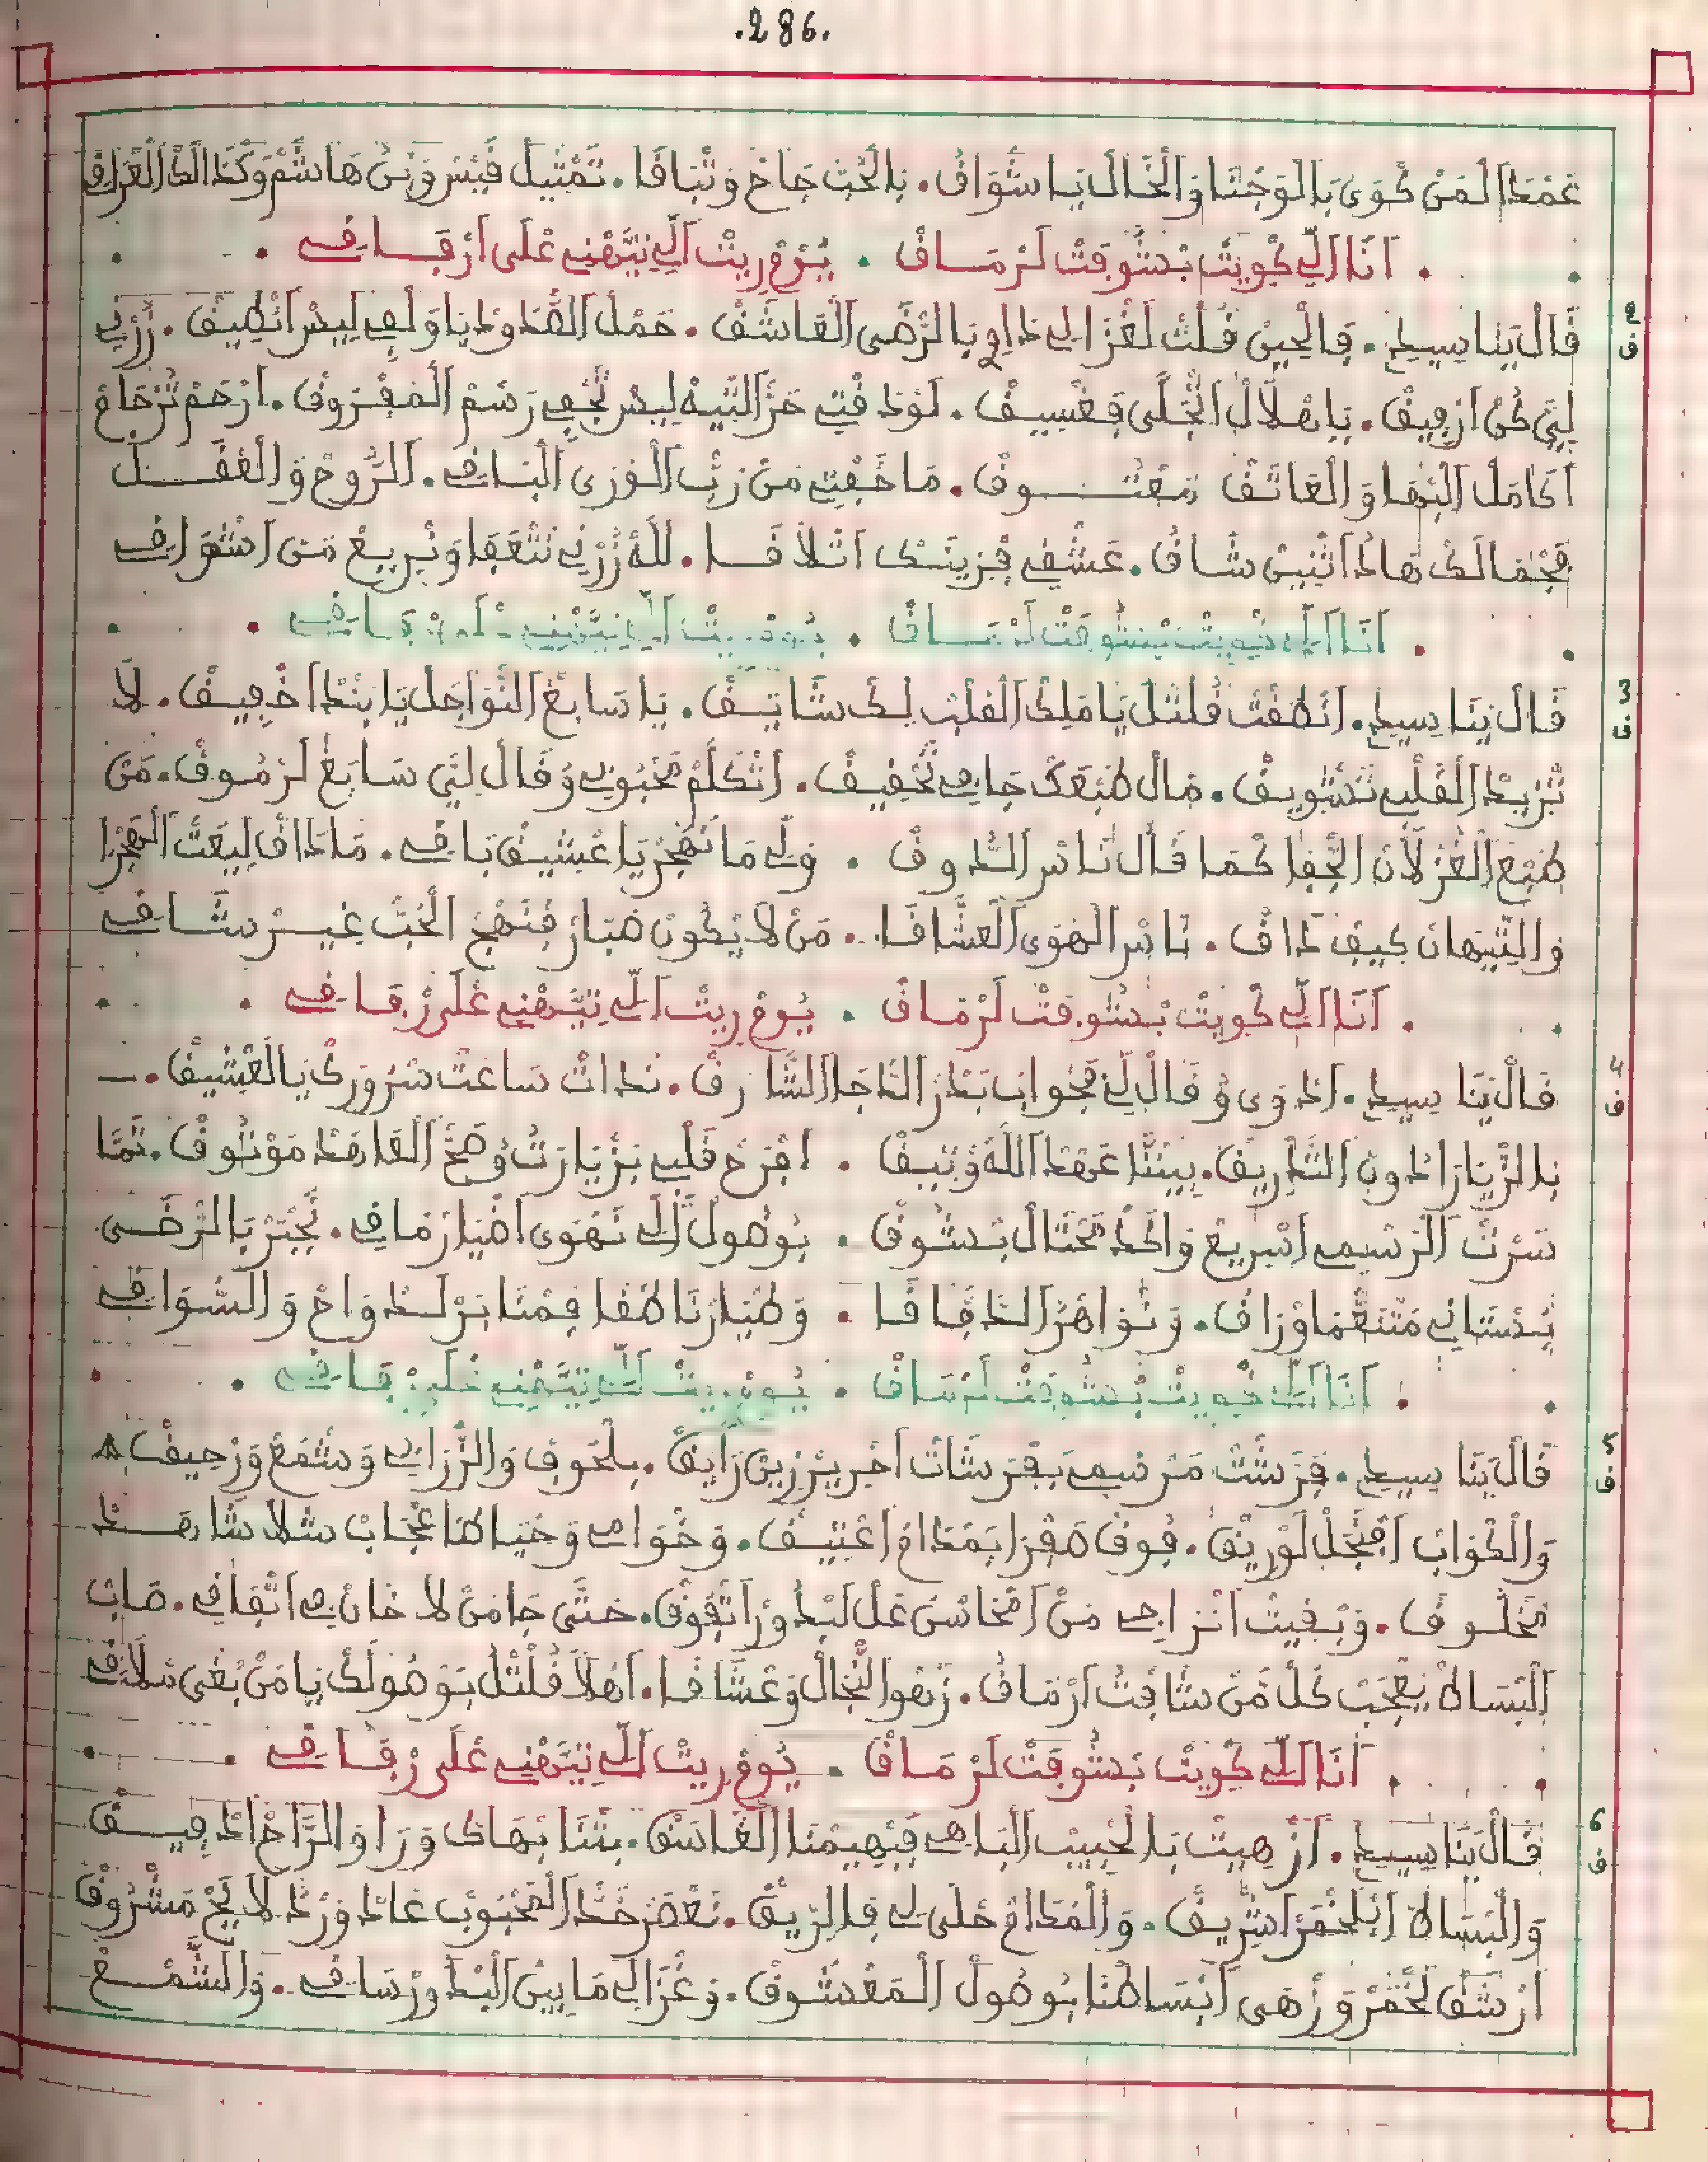 .286.
غمد المن كوى بالوجنا والخال يا شواق. بالحب جاح وتنافا. تمثيل فيسر وبن هاشم وكذالك العراق
أنا الي كويت بشوقت لرماق . يوم ريت الي نتيهني على ارقاقي
2 ف
قال يا سيد. فالحين قلت لغزالي داوي بالرضى العاشق. حمل الصدود يا ولفي ليس انطيق. زرني
لين كن ارفيق. يا هلال اتجلى فغسيق. لود فتي حز التيه ليس تجفي رسم المفروق. ارحم ترجاع
اكامل البها والعاتق معتوق. ما خفتي من رب الورى الباقي. الروح والعقل
فجمالك هاد اثنين شاق. عشقي فزينك اتلاقا. لله زرني نتعفا ونبريع من اشواقي
أنا الي كويت بشوقت لرماق . يوم ريت الي نتيهني على ارقاقي
3 ف
قال يا سيد. انطقت قلتل يا ملك القلب لك شايق. يا سابغ النواجل يا بند اخفيق. لا
تزيد القلب تشويق. مال طبعك جافي تحقيق. اتكلم محبوبي وقال لي سابغ لرموق. من
طبع الغزلان الجفا كما قال ناس الدوق . ولي ما تهجر يا عشيق باقي. ماداق ليعت الهجرا
والتيهان كيف داق. ناس الهوى العشاقا. من لا يكون صبار فنهج الحب غير شاقي
أنا الي كويت بشوقت لرماق . يوم ريت الي نتيهني على ارقاقي
4 ف
قال يا سيد. ادوى وقال لي فجواب بدر الداجا الشارق. ندات ساعت سرورك يالعشيق.
بالزيارا دون التدريق. بيننا عهد الله وثيق . افرح قلبي بزيارت وصح العاهد موثوق. تما
سرت الرسمي اسريع واكد محتال بشوق . بوصول الي نهوى اضيا رماقي. نجبر بالرضى
بستاني متنعما وزاق. ونواهر الدفاقا . وطيارنا طفا فمنابر لدواح والسواقي
أنا الي كويت بشوقت لرماق . يوم ريت الي نتيهني على ارقاقي
5 ف
قال يا سيد. فرشت مرسمي بفرشات احرير زين رايق. بلحوف والزرابي وشمع ورحيق
والكواب افتجل لوريق. فوق صفرا بمدام اعتيق. وخوامي وحياطا عجاب شلا شاهد
مخلوق. وبقيت انراجي من امحاسن عل لبدور اتفوق. حتى جا من لا خان في اتفاقي. صاب
البساط يعجب كل من شافت ارماق. زهوا لنجال وعشاقا. اهلا قلتل بوصولك يا من بغى تلاقي
أنا الي كويت بشوقت لرماق . يوم ريت الي نتيهني على ارقاقي
6 ف
قال يا سيد. ازهيت بالحبيب الباهي فبهيمنا الغاسق. بتنا بهاك ورا والراح ادفيق
والبساط ابلخمر اشريق. والمدام حلى لي فالريق. نعصر خد المحبوب عاد ورد لا يح مشروق
ارشق لخمر وزهى ابساطنا بوصول المعشوق. وغزالي ما بين البدور ساقي. والشمع